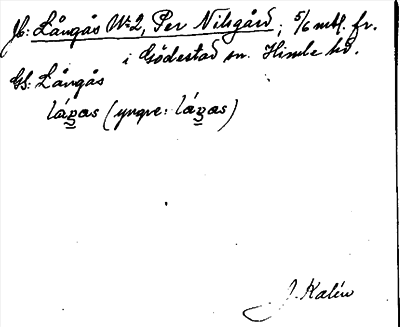 Jb: Långås No 2, Per Nilsgård; 5/6 mtl. fr.
i Gödestad sn. Himle hd.
GS: Långås
láŋas (yngre: láŋas)
J. Kalén